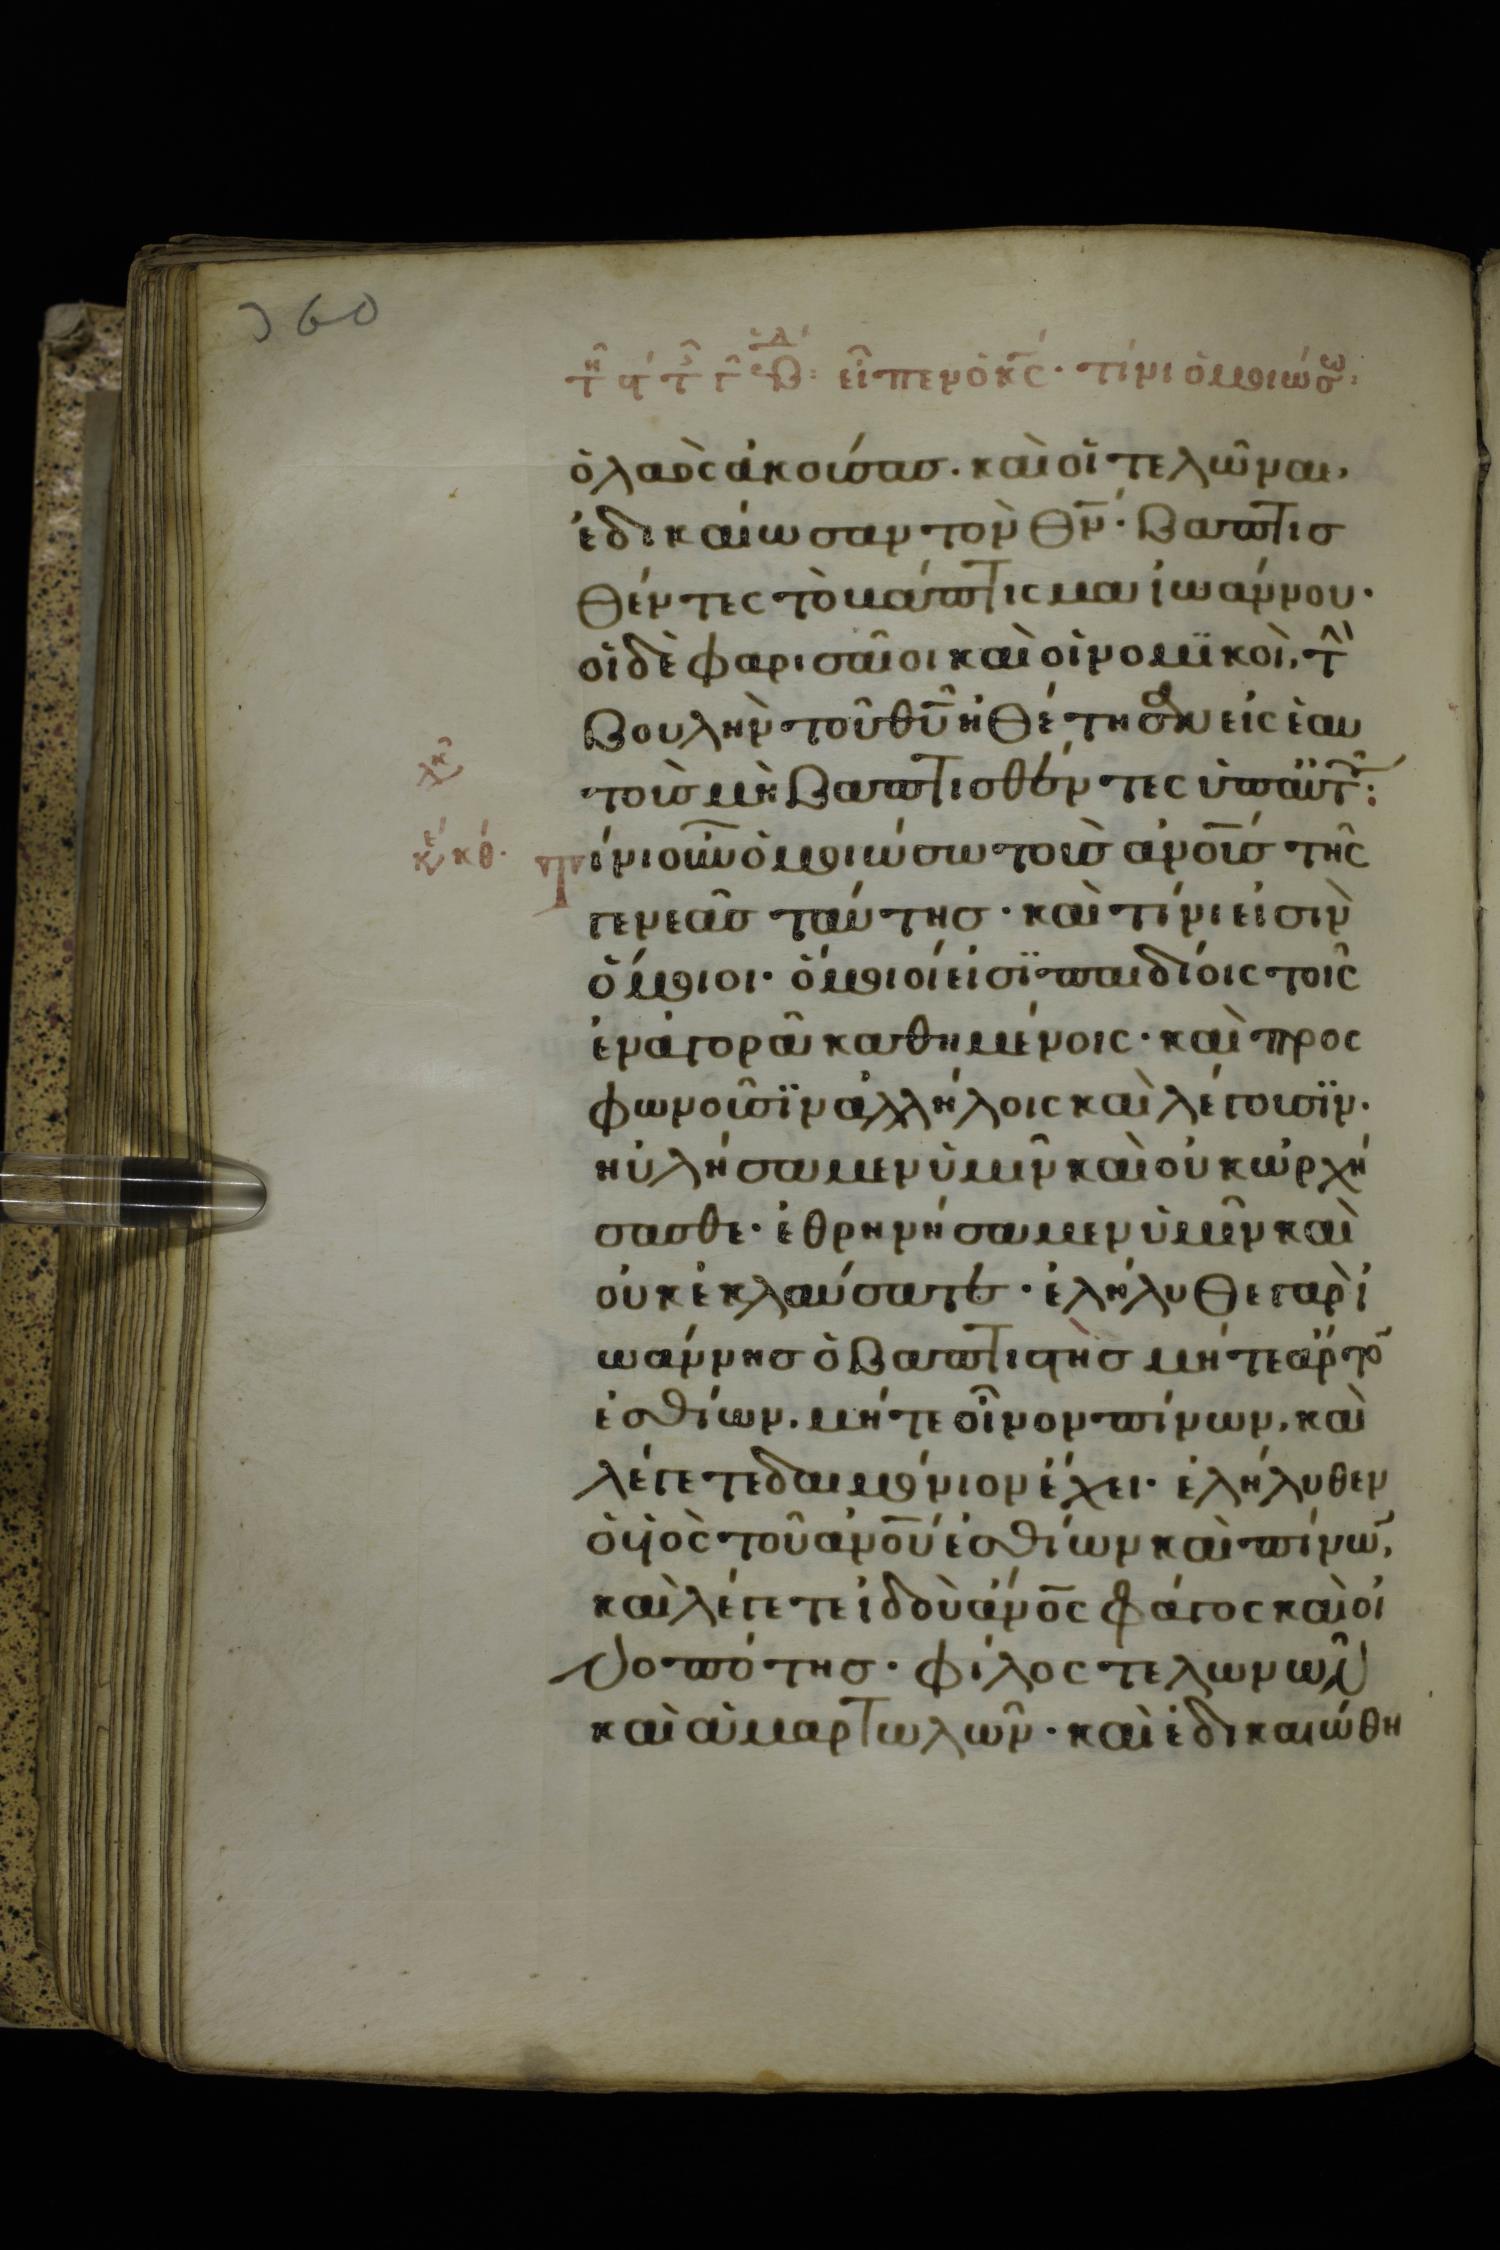 360
τῆ ϛ´ τ̑ γ̑ ἑβδ: εἶπεν ὁ κ̅ς̅· τίνι ὁμοιώσω:
ὁ λαὸς ἀκούσασ. καὶ οἱ τελῶναι,
ἐδικαίωσαν τὸν θ̅ν̅· βαπτισ
θέντες τὸ βάπτισμα ἰωάννου·
οἱ δὲ φαρισαῖοι καὶ οἱ νομϊκοὶ, τ̑
βουλὴν τοῦ θ̅υ̅ ἠθέτησαν εἰς ἑαυ
τοὺσ μὴ βαπτισθέντες ὑπ αὐτ:
κε κθ·
Τίνι οὖν ὁμοιώσω τοὺσ ἀν̅ο̅υ̅σ τῆς
γενεᾶσ ταύτησ· καὶ τίνι εἰσιν
ὅμοιοι· ὅμοιοί εἰσϊ παιδίοις τοῖς
ἐν ἀγορᾶ καθημένοις· καὶ προς
φωνοῦσϊν ἀλλήλοις καὶ λέγουσϊν·
ηὐλήσαμεν ὑμῖν καὶ οὐκ ὠρχή
σασθε· ἐθρηνήσαμεν ὑμῖν καὶ
οὐκ ἐκλαύσατε· ἐλήλυθε γαρ ἰ
ωάννησ ὁ βαπτιστὴσ μήτε ἄρτο
ἐσθίων, μήτε οἶνον πίνων, καὶ
λέγετε δαιμόνιον ἔχει· ἐλήλυθεν
ὁ υἱὸς τοῦ ἀν̅ο̅υ̅ ἐσθίων καὶ πίνω,
καὶ λέγετε ἰδοὺ ἄν̅ο̅ς φάγος καὶ οἰ
νοπότησ· φίλος τελωνῶν
καὶ ἁμαρτωλῶν· καὶ ἐδικαιώθη